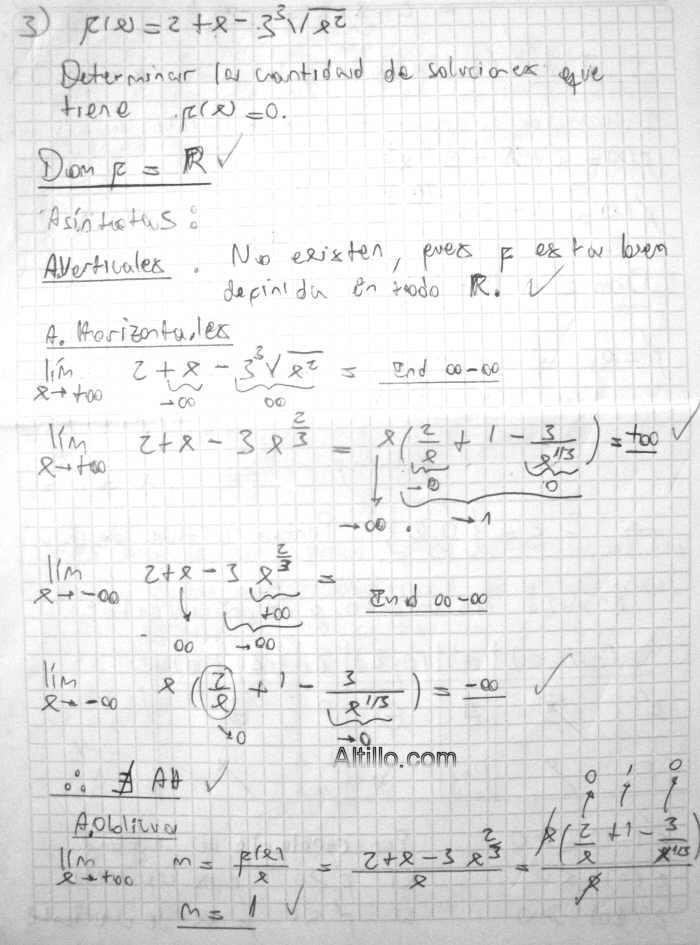 3) f(x) = 2 + x - 3 ³√x²
Determinar la cantidad de soluciones que
tiene f(x) = 0.
Dom f = ℝ ✓
Asíntotas :
A.Verticales . No existen, pues f esta bien
definida en todo ℝ. ✓
A. Horizontales
lím x→+∞ 2 + x - 3 ³√x² = Ind ∞-∞
→∞ ∞
lím x→+∞ 2 + x - 3 x^(2/3) = x ( 2/x + 1 - 3/x^(1/3) ) = +∞ ✓
→0 0
→∞ . →1
lím x→-∞ 2 + x - 3 x^(2/3) = Ind ∞-∞
+∞
∞ →∞
lím x→-∞ x ( 2/x + 1 - 3/x^(1/3) ) = -∞ ✓
→0 →0
Altillo.com
∴ ∄ AH ✓
0 1 0
A.Oblicua
lím x→+∞ m = f(x)/x = (2 + x - 3 x^(2/3))/x = x ( 2/x + 1 - 3/x^(1/3) )/x
m = 1 ✓